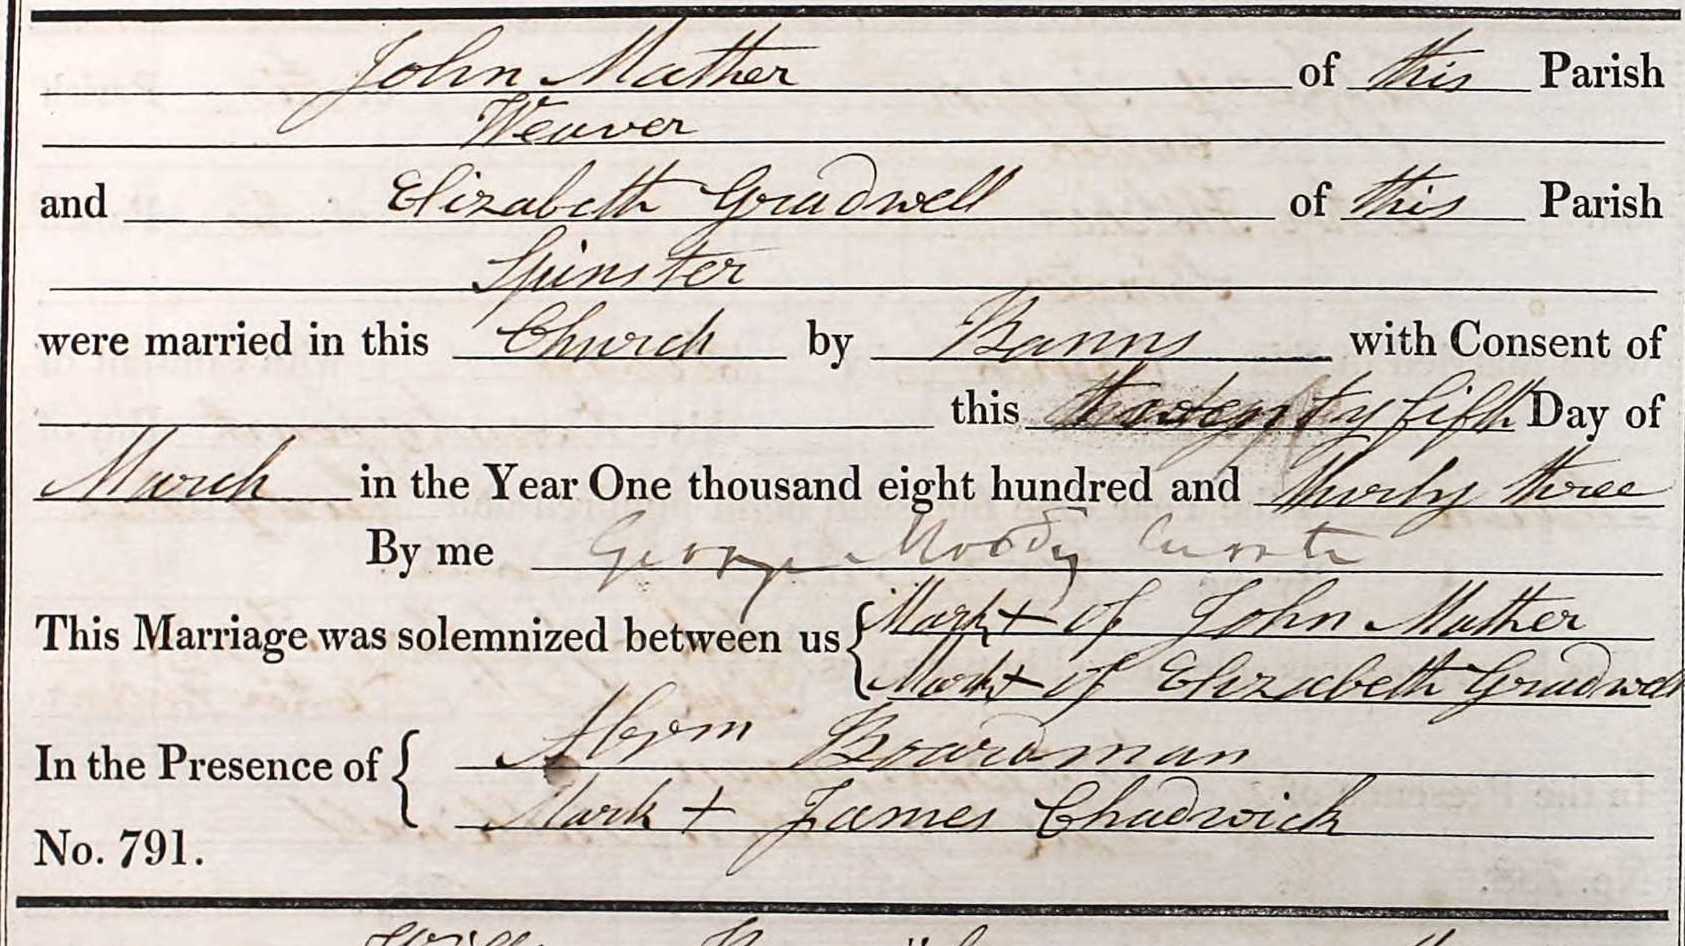 John Mather of this Parish
Weaver
and Elizabeth Gradwell of this Parish
Spinster
were married in this Church by Banns with Consent of
this twenty fifth Day of
March in the Year One thousand eight hundred and thirty three
By me George Moody Curate
This Marriage was solemnized between us { Mark + of John Mather
Mark + of Elizabeth Gradwell
In the Presence of { Abrm Boardman
Mark + James Chadwick
No. 791.